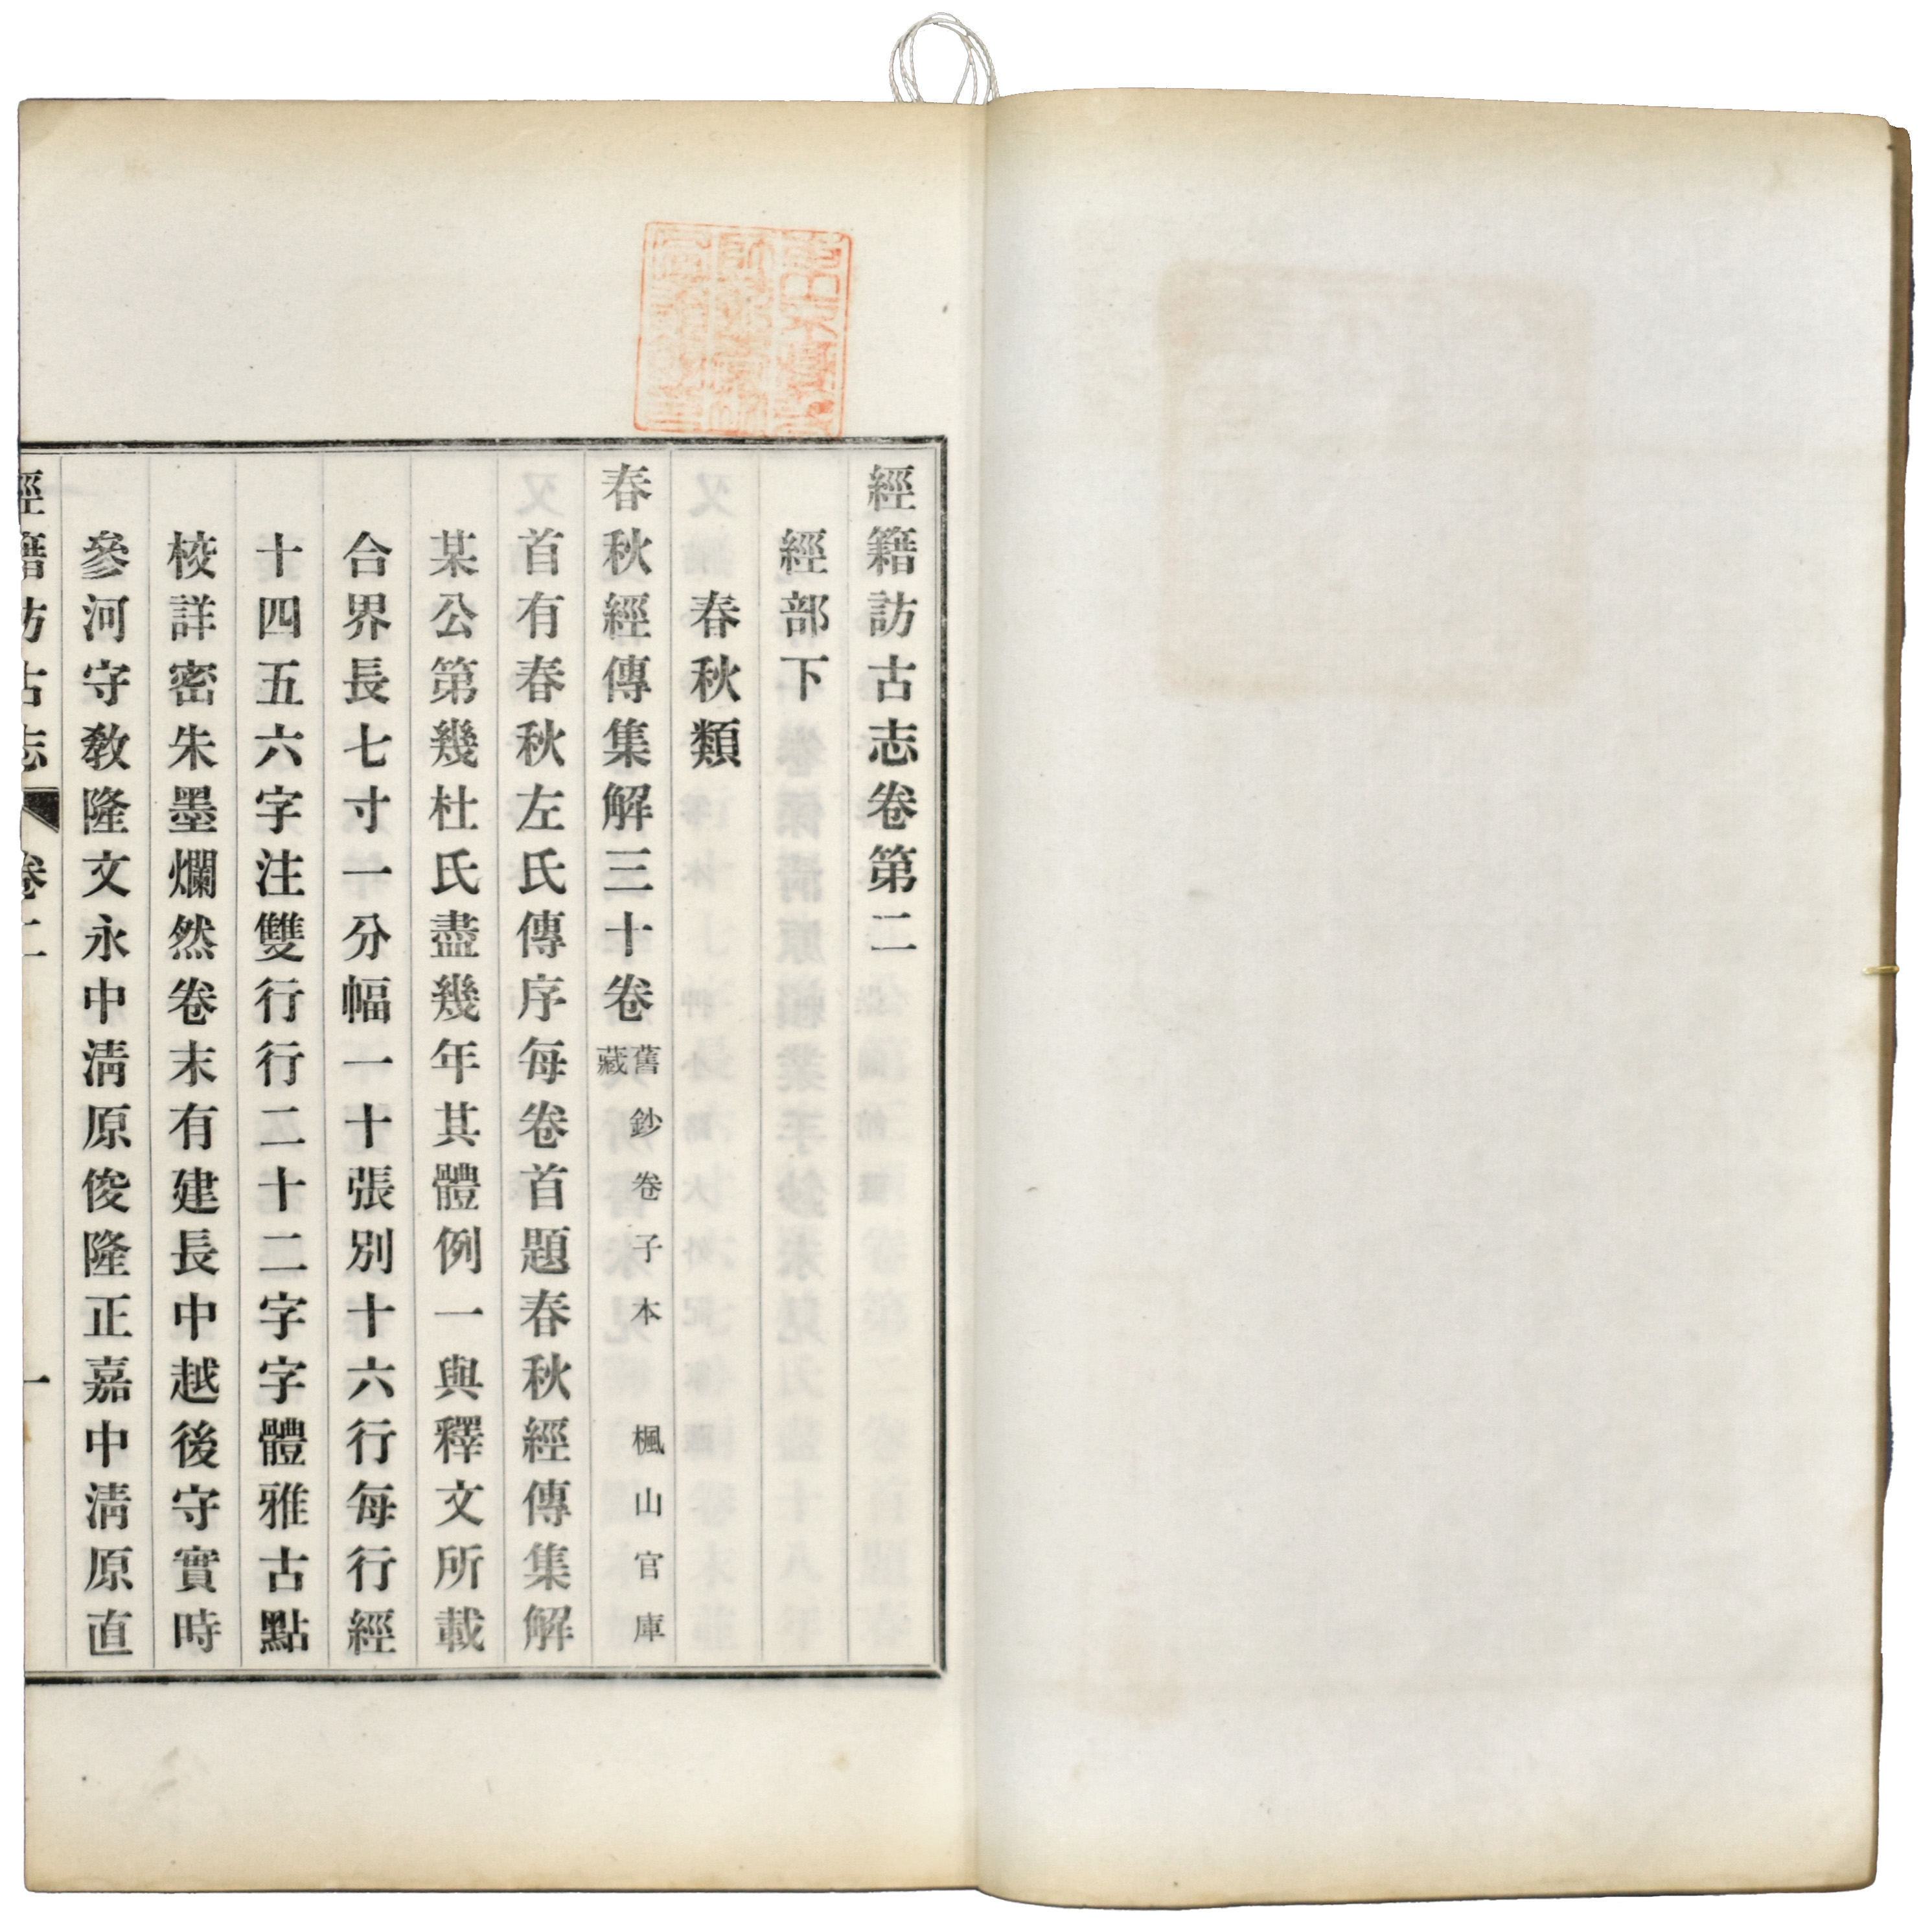 經籍訪古志卷第二
經部下
春秋類
春秋經傳集解三十卷舊鈔卷子本　楓山官庫藏
首有春秋左氏傳序每卷首題春秋經傳集解
某公第幾杜氏盡幾年其體例一與釋文所載
合界長七寸一分幅一十張別十六行每行經
十四五六字注雙行行二十二字字體雅古點
校詳密朱墨爛然卷末有建長中越後守實時
參河守敎隆文永中淸原俊隆正嘉中淸原直
經籍訪古志　卷二　一